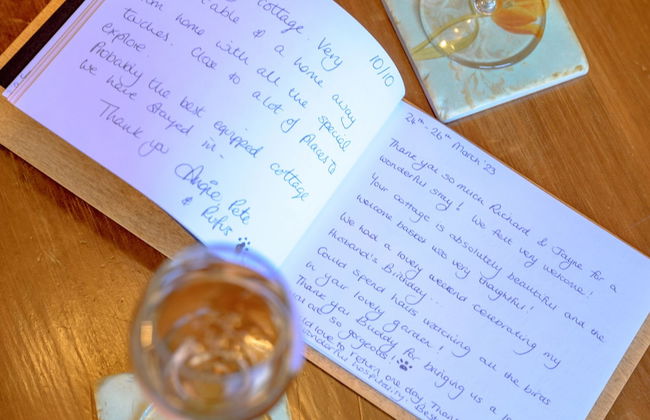 cottage. Very
able & a home away
home with all the special
touches. Close to a lot of places to
explore.
Probably the best equipped cottage
we have stayed in -
Thank you
Angie Pete
& Rufus
10/10
24th - 26th March '23
Thank you so much Richard & Jayne for a
wonderful stay! We felt very welcome!
Your cottage is absolutely beautiful and the
welcome basket was very thoughtful!
We had a lovely weekend celebrating my
Husband's Birthday...
Could spend hours watching all the birds
in your lovely garden!
Thank you Buddy for bringing us a
are so gorgeous!
love to return one day. Thank
wonderful hospitality. Best